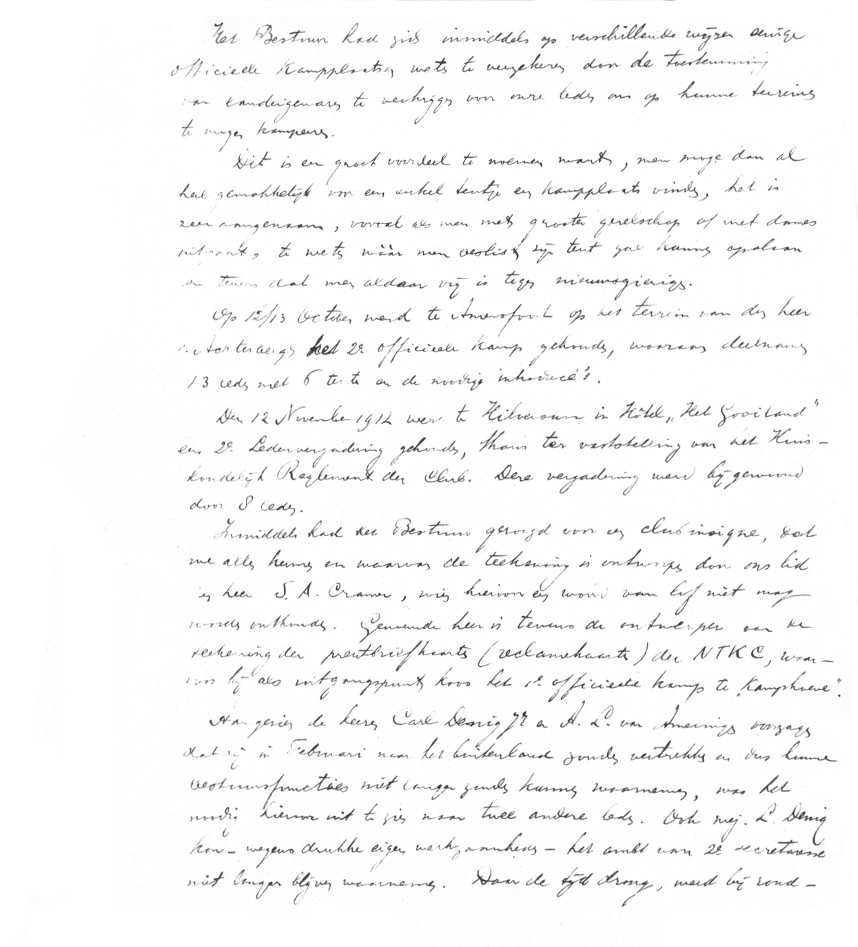 Het Bestuur had zich inmiddels op verschillende wijzen eenige
officieele kampplaatsen weten te verzekeren door de toestemming
van landeigenaren te verkrijgen voor onze leden om op hunne terreinen
te mogen kampeeren.
Dit is een groot voordeel te noemen want, men moge dan al
heel gemakkelijk voor een enkel tentje een kampplaats vinden, het is
zeer aangenaam, vooral als men met grooter gezelschap of met dames
uitgaat, te weten wáár men beslist zijn tent zal kunnen opslaan
en tevens dat men aldaar vrij is tegen nieuwsgierigen.
Op 12/13 October werd te Amersfoort op het terrein van den heer
v. Achterbergh het 2e officieele kamp gehouden, waaraan deelnamen
13 leden met 6 tenten en de noodige introducé's.
Den 12 November 1912 werd te Hilversum in Hôtel „Het Gooiland"
een 2e Ledenvergadering gehouden, thans ter vaststelling van het Huis-
houdelijk Reglement der Club. Deze vergadering werd bijgewoond
door 8 leden.
Inmiddels had het Bestuur gezorgd voor een clubinsigne, dat
we allen kennen en waarvan de teekening is ontworpen door ons lid
den heer S. A. Cramer, wien hiervoor een woord van lof niet mag
worden onthouden. Genoemde heer is tevens de ontwerper van de
teekening der prentbriefkaarten (reclamekaarten) der NTKC, waar-
voor hij als uitgangspunt koos het 1e officieele kamp te „Kamphoeve".
Aangezien de heeren Carl Denig Jr en A. L. van Ameringen voorzagen
dat zij in Februari naar het buitenland zouden vertrekken en dus hunne
bestuursfuncties niet langer zouden kunnen waarnemen, was het
noodig hiervoor uit te zien naar twee andere leden. Ook mej. L. Denig
kon – wegens drukke eigen werkzaamheden – het ambt van 2e secretaresse
niet langer blijven waarnemen. Daar de tijd drong, werd bij rond-